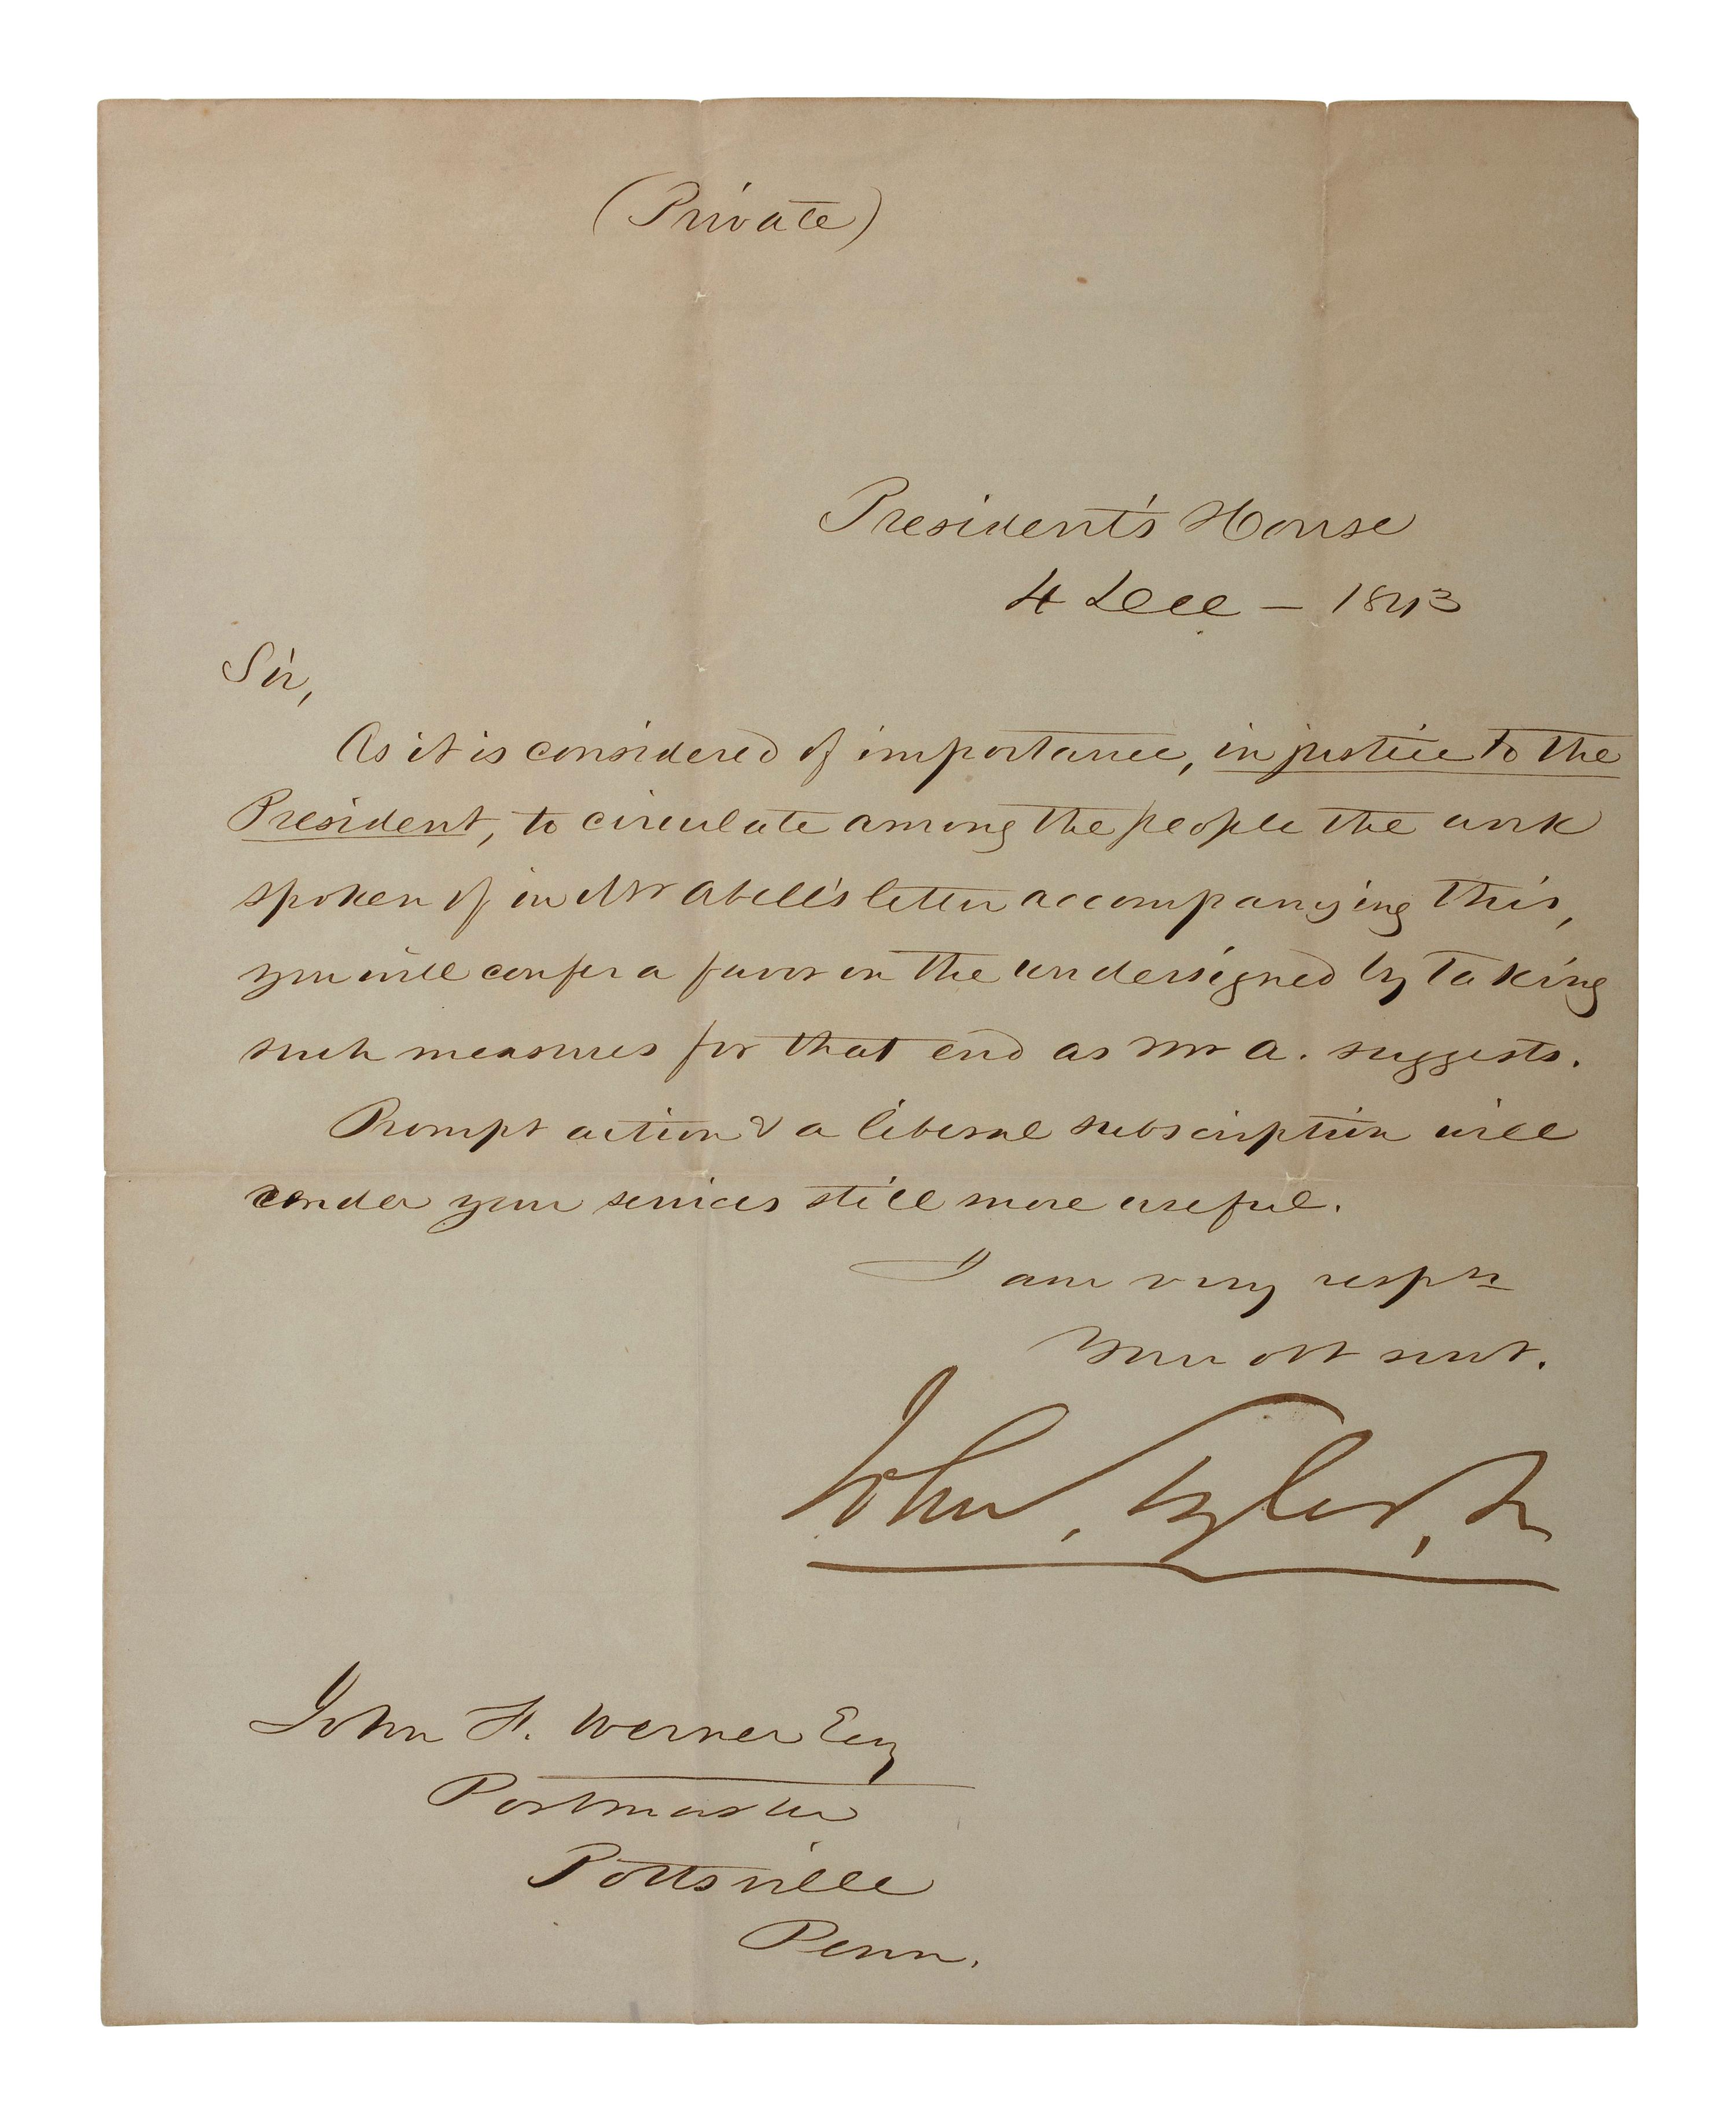 (Private)
President's House
4 Dec - 1843
Sir,
As it is considered of importance, in justice to the
President, to circulate among the people the work
spoken of in Mr Abell's letter accompanying this,
you will confer a favor on the undersigned by taking
such measures for that end as Mr A. suggests.
Prompt action & a liberal subscription will
render your services still more useful.
I am very resply
Your obt servt.
John, Tyler, Jr
John H. Werner Esq
Postmaster
Pottsville
Penn.